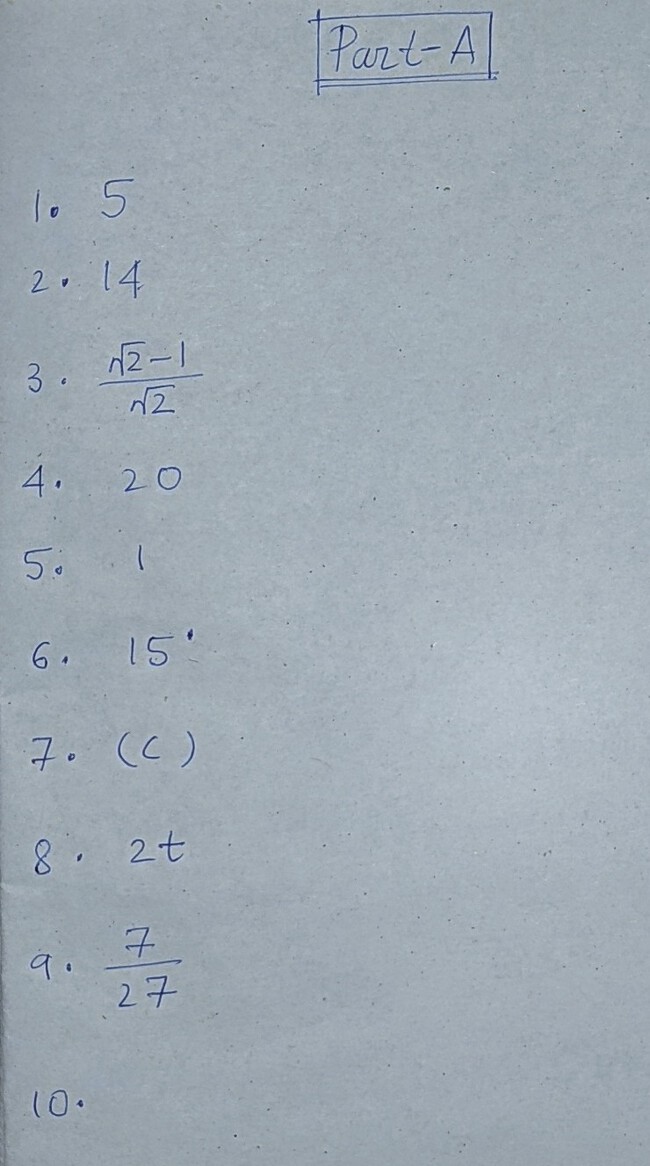 Part-A
1. 5
2. 14
3. (√2-1)/√2
4. 20
5. 1
6. 15°
7. (C)
8. 2t
9. 7/27
10.